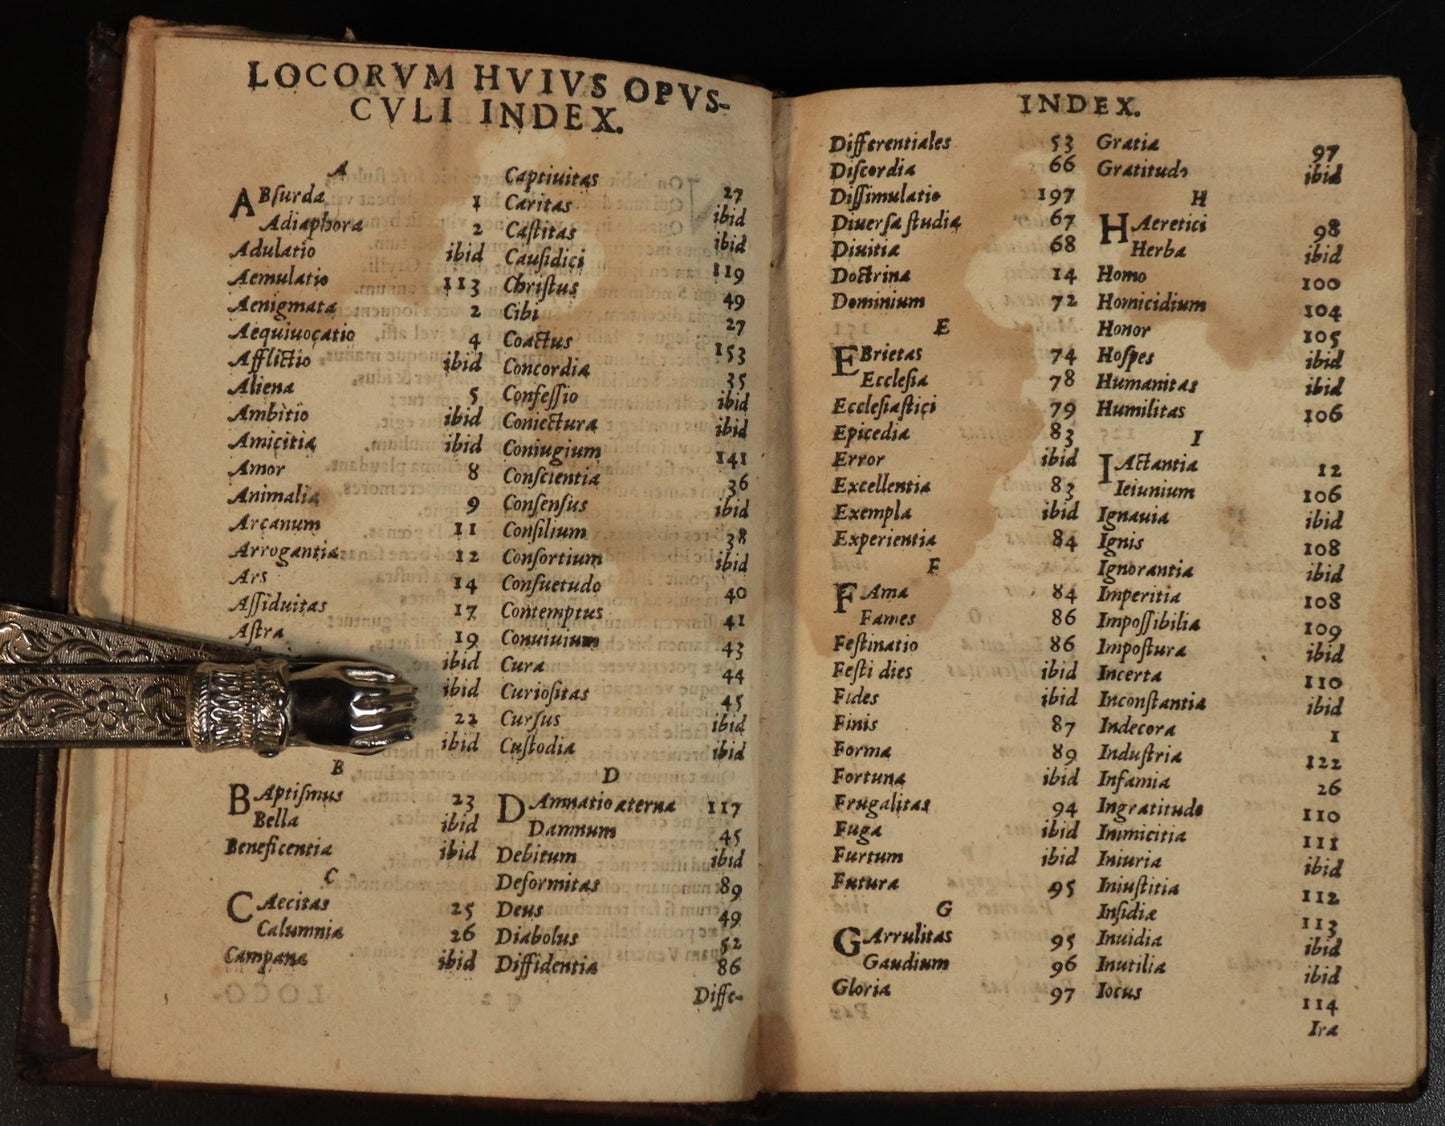 LOCORVM HVIVS OPVS-
CVLI INDEX.
A
ABſurda 1
Adiaphora 2
Adulatio ibid
Aemulatio 113
Aenigmata 2
Aequiuocatio 4
Afflictio ibid
Aliena 5
Ambitio ibid
Amicitia ibid
Amor 8
Animalia 9
Arcanum 11
Arrogantia 12
Ars 14
Aſſiduitas 17
Aſtra 19
ibid
ibid
22
ibid
B
BAptiſmus 23
Bella ibid
Beneficentia ibid
C
CAecitas 25
Calumnia 26
Campana ibid
Captiuitas 27
Caritas ibid
Caſtitas ibid
Cauſidici 119
Chriſtus 49
Cibi 27
Coactus 153
Concordia 35
Confeſſio ibid
Coniectura ibid
Coniugium 141
Conſcientia 36
Conſenſus ibid
Conſilium 38
Conſortium ibid
Conſuetudo 40
Contemptus 41
Conuiuium 43
Cura 44
Curioſitas 45
Curſus ibid
Cuſtodia ibid
D
DAmnatio æterna 117
Damnum 45
Debitum ibid
Deformitas 89
Deus 49
Diabolus 52
Diffidentia 86
Diffe-
INDEX.
Differentiales 53
Diſcordia 66
Diſſimulatio 197
Diuerſa ſtudia 67
Diuitiæ 68
Doctrina 14
Dominium 72
E
EBrietas 74
Eccleſia 78
Eccleſiaſtici 79
Epicedia 83
Error ibid
Excellentia 83
Exempla ibid
Experientia 84
F
FAma 84
Fames 86
Feſtinatio 86
Feſti dies ibid
Fides ibid
Finis 87
Forma 89
Fortuna ibid
Frugalitas 94
Fuga ibid
Furtum ibid
Futura 95
G
GArrulitas 95
Gaudium 96
Gloria 97
Gratia 97
Gratitudo ibid
H
HAeretici 98
Herba ibid
Homo 100
Homicidium 104
Honor 105
Hoſpes ibid
Humanitas ibid
Humilitas 106
I
IActantia 12
Ieiunium 106
Ignauia ibid
Ignis 108
Ignorantia ibid
Imperitia 108
Impoſſibilia 109
Impoſtura ibid
Incerta 110
Inconſtantia ibid
Indecora 1
Induſtria 122
Infamia 26
Ingratitudo 110
Inimicitia 111
Iniuria ibid
Iniuſtitia 112
Inſidiæ 113
Inuidia ibid
Inutilia ibid
Iocus 114
Ira